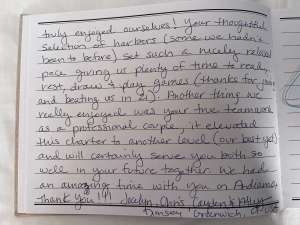 truly enjoyed ourselves! Your thoughtful
selection of harbors (some we hadn't
been to before) set such a nicely relaxed
pace giving us plenty of time to read,
rest, draw & play games (thanks for
and beating us in 21). Another thing we
really enjoyed was your true teamwork
as a professional couple, it elevated
this charter to another level (our best yet)
and will certainly serve you both so
well in your future together. We had
an amazing time with you on
Thank you!!! Jocelyn, Chris,
Greenwich, CT